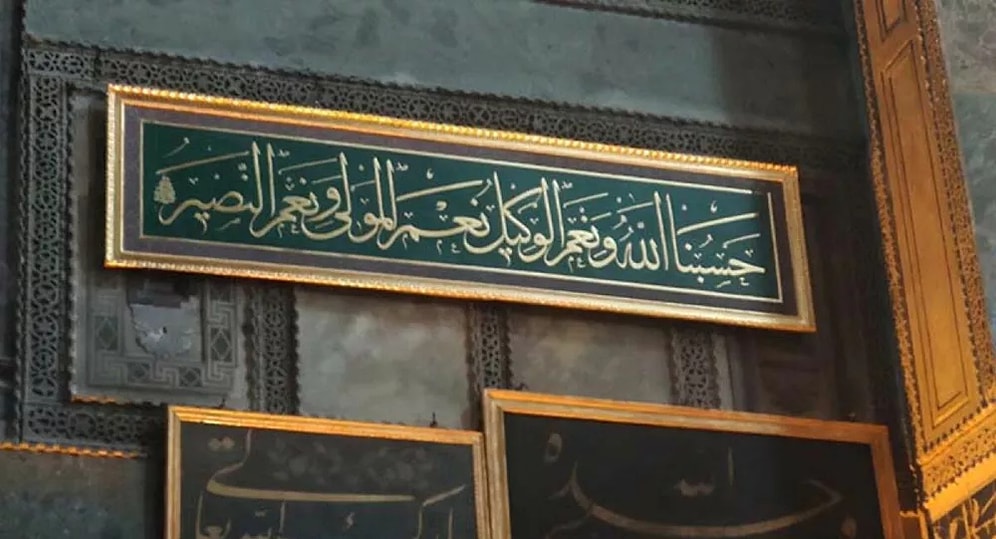 حسبنا الله ونعم الوكيل نعم المولى ونعم النصير
الله
تعالى